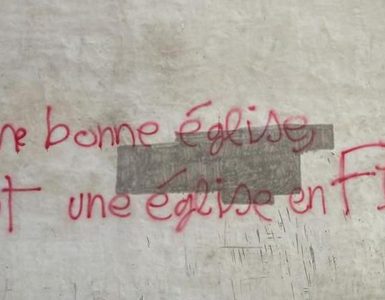 ne bonne église,
t une église en F